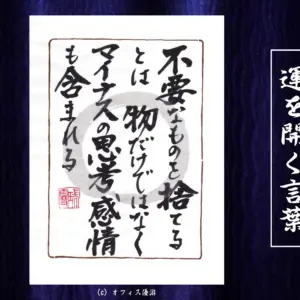 運を開く言葉
不要なものを捨てる
とは 物だけではなく
マイナスの思考、感情
も含まれる
(c) オフィス優游